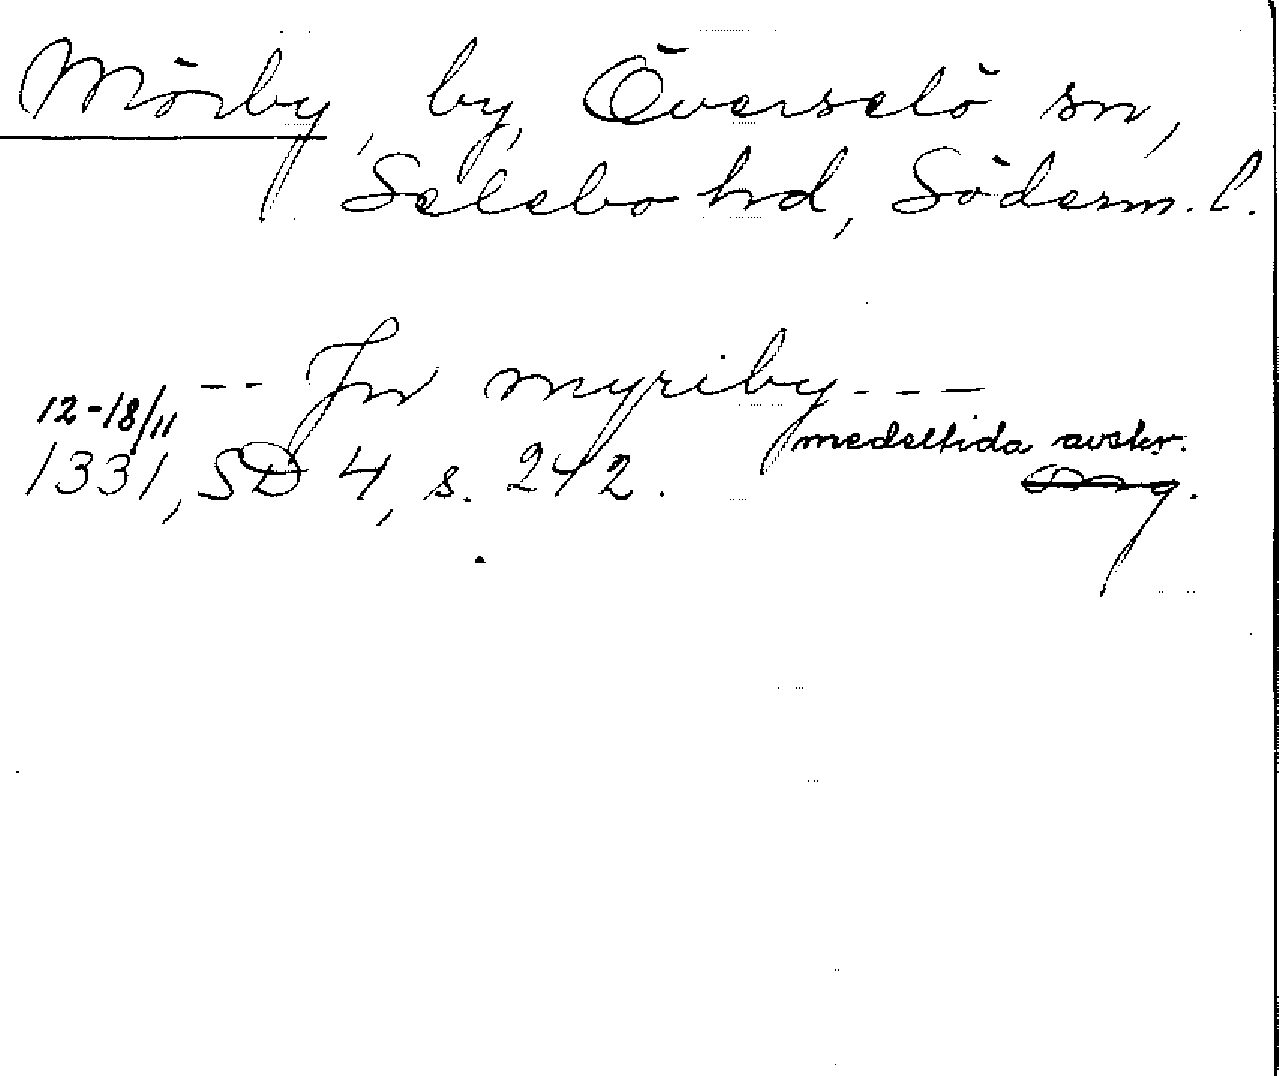 Mörby, by, Överselö sn,
Selebo hd, Söderm. l.
-- Jn myriby ---
12-18/11
1331, SD 4, s. 242.
medeltida avskr.